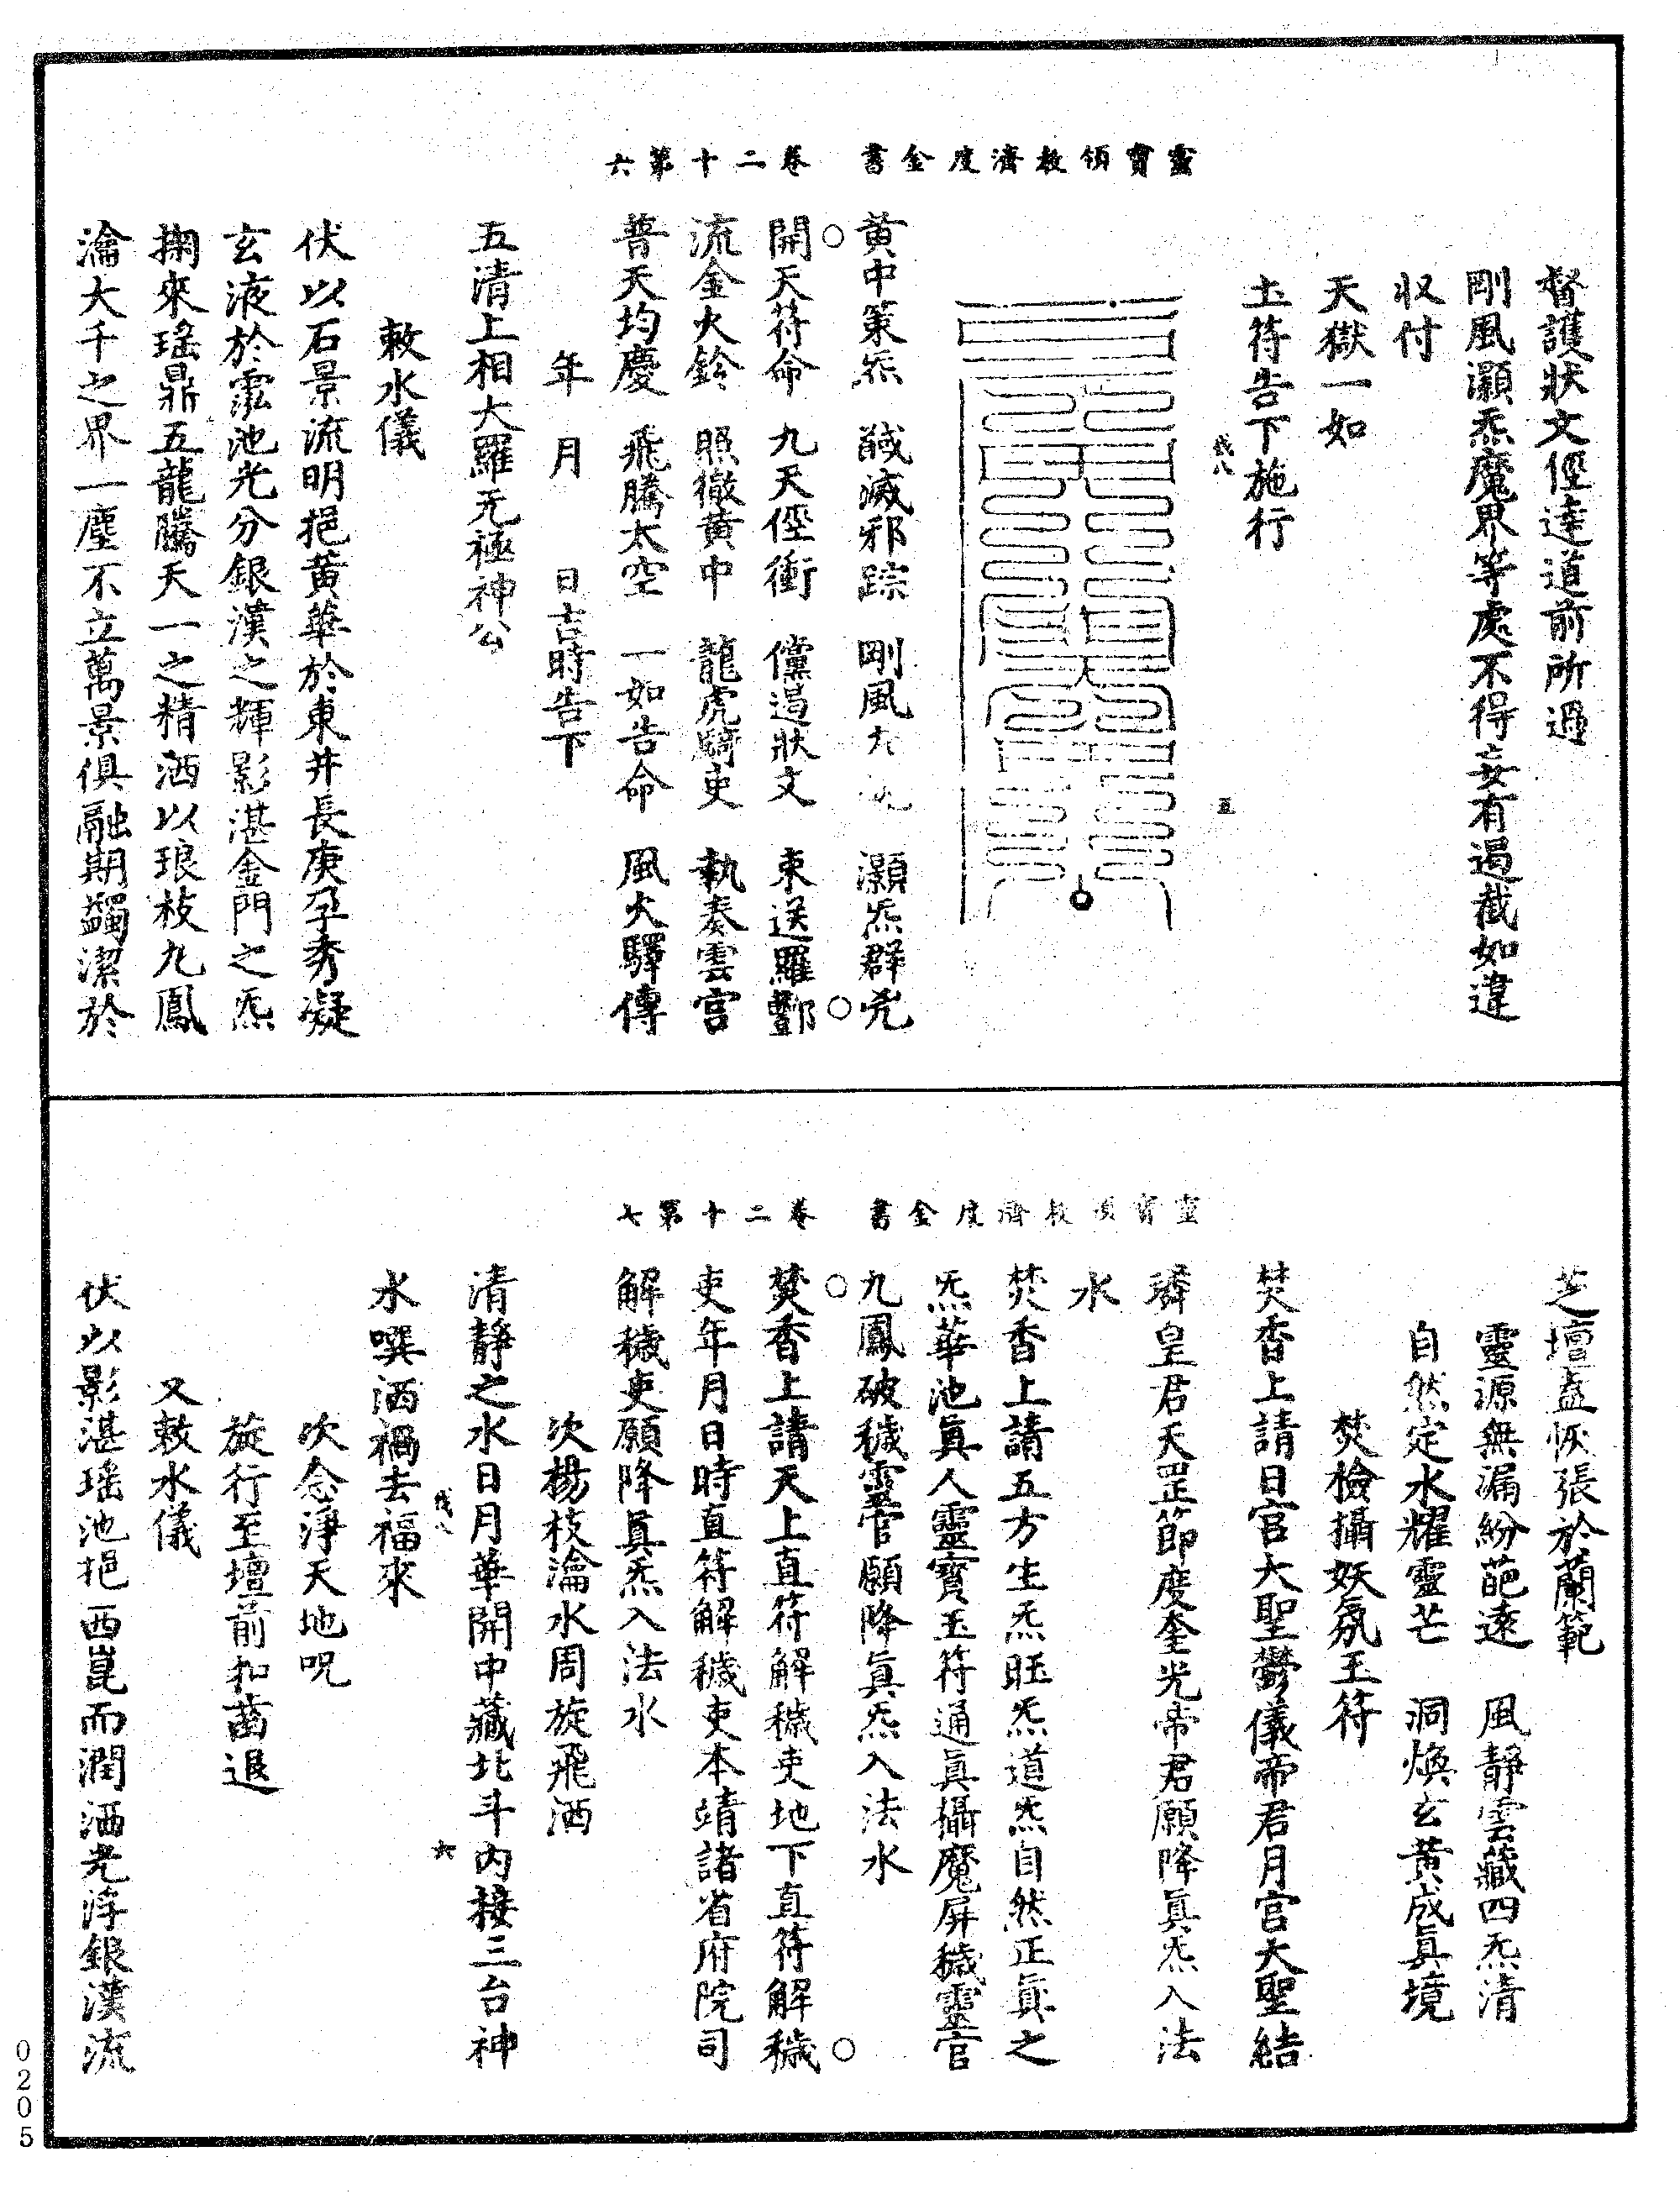 靈寶領教濟度金書　卷二十第六
督護狀文徑達道前所過
剛風灝炁魔界等處不得妄有遏截如違
収付
天獄一如
土符告下施行
戍八
五
黃中策炁　馘滅邪踪　剛風九　灝炁群兇
開天符命　九天徑衝　儻遏狀文　束送羅酆
流金火鈴　照徹黃中　龍虎騎吏　執奏雲宮
普天均慶　飛騰太空　一如告命　風火驛傳
年　月　日吉時告下
五清上相大羅无極神公
敕水儀
伏以石景流明挹黃華於東井長庚孕秀凝
玄液於霐池光分銀漢之輝影湛金門之炁
掬來瑤鼎五龍騰天一之精洒以琅枝九鳳
瀹大千之界一塵不立萬景俱融期蠲潔於
靈寶領教濟度金書　卷二十第七
芝壇盍恢張於蘭範
靈源無漏紛葩遠　風靜雲藏四炁清
自然定水耀靈芒　洞煥玄黃成眞境
焚檢攝妖氛玉符
焚香上請日宮大聖鬱儀帝君月宮大聖結
璘皇君天罡節度奎光帝君願降眞炁入法
水
焚香上請五方生炁旺炁道炁自然正眞之
炁華池眞人靈寶玉符通眞攝魔屏穢靈官
九鳳破穢靈官願降眞炁入法水
焚香上請天上直符解穢吏地下直符解穢
吏年月日時直符解穢吏本靖諸省府院司
解穢吏願降眞炁入法水
次楊枝瀹水周旋飛洒
清靜之水日月華開中藏北斗內接三台神
水噀洒禍去福來
戍八
六
次念淨天地呪
旋行至壇前扣齒退
又敕水儀
伏以影湛瑤池挹西崑而潤洒光浮銀漢流
0205